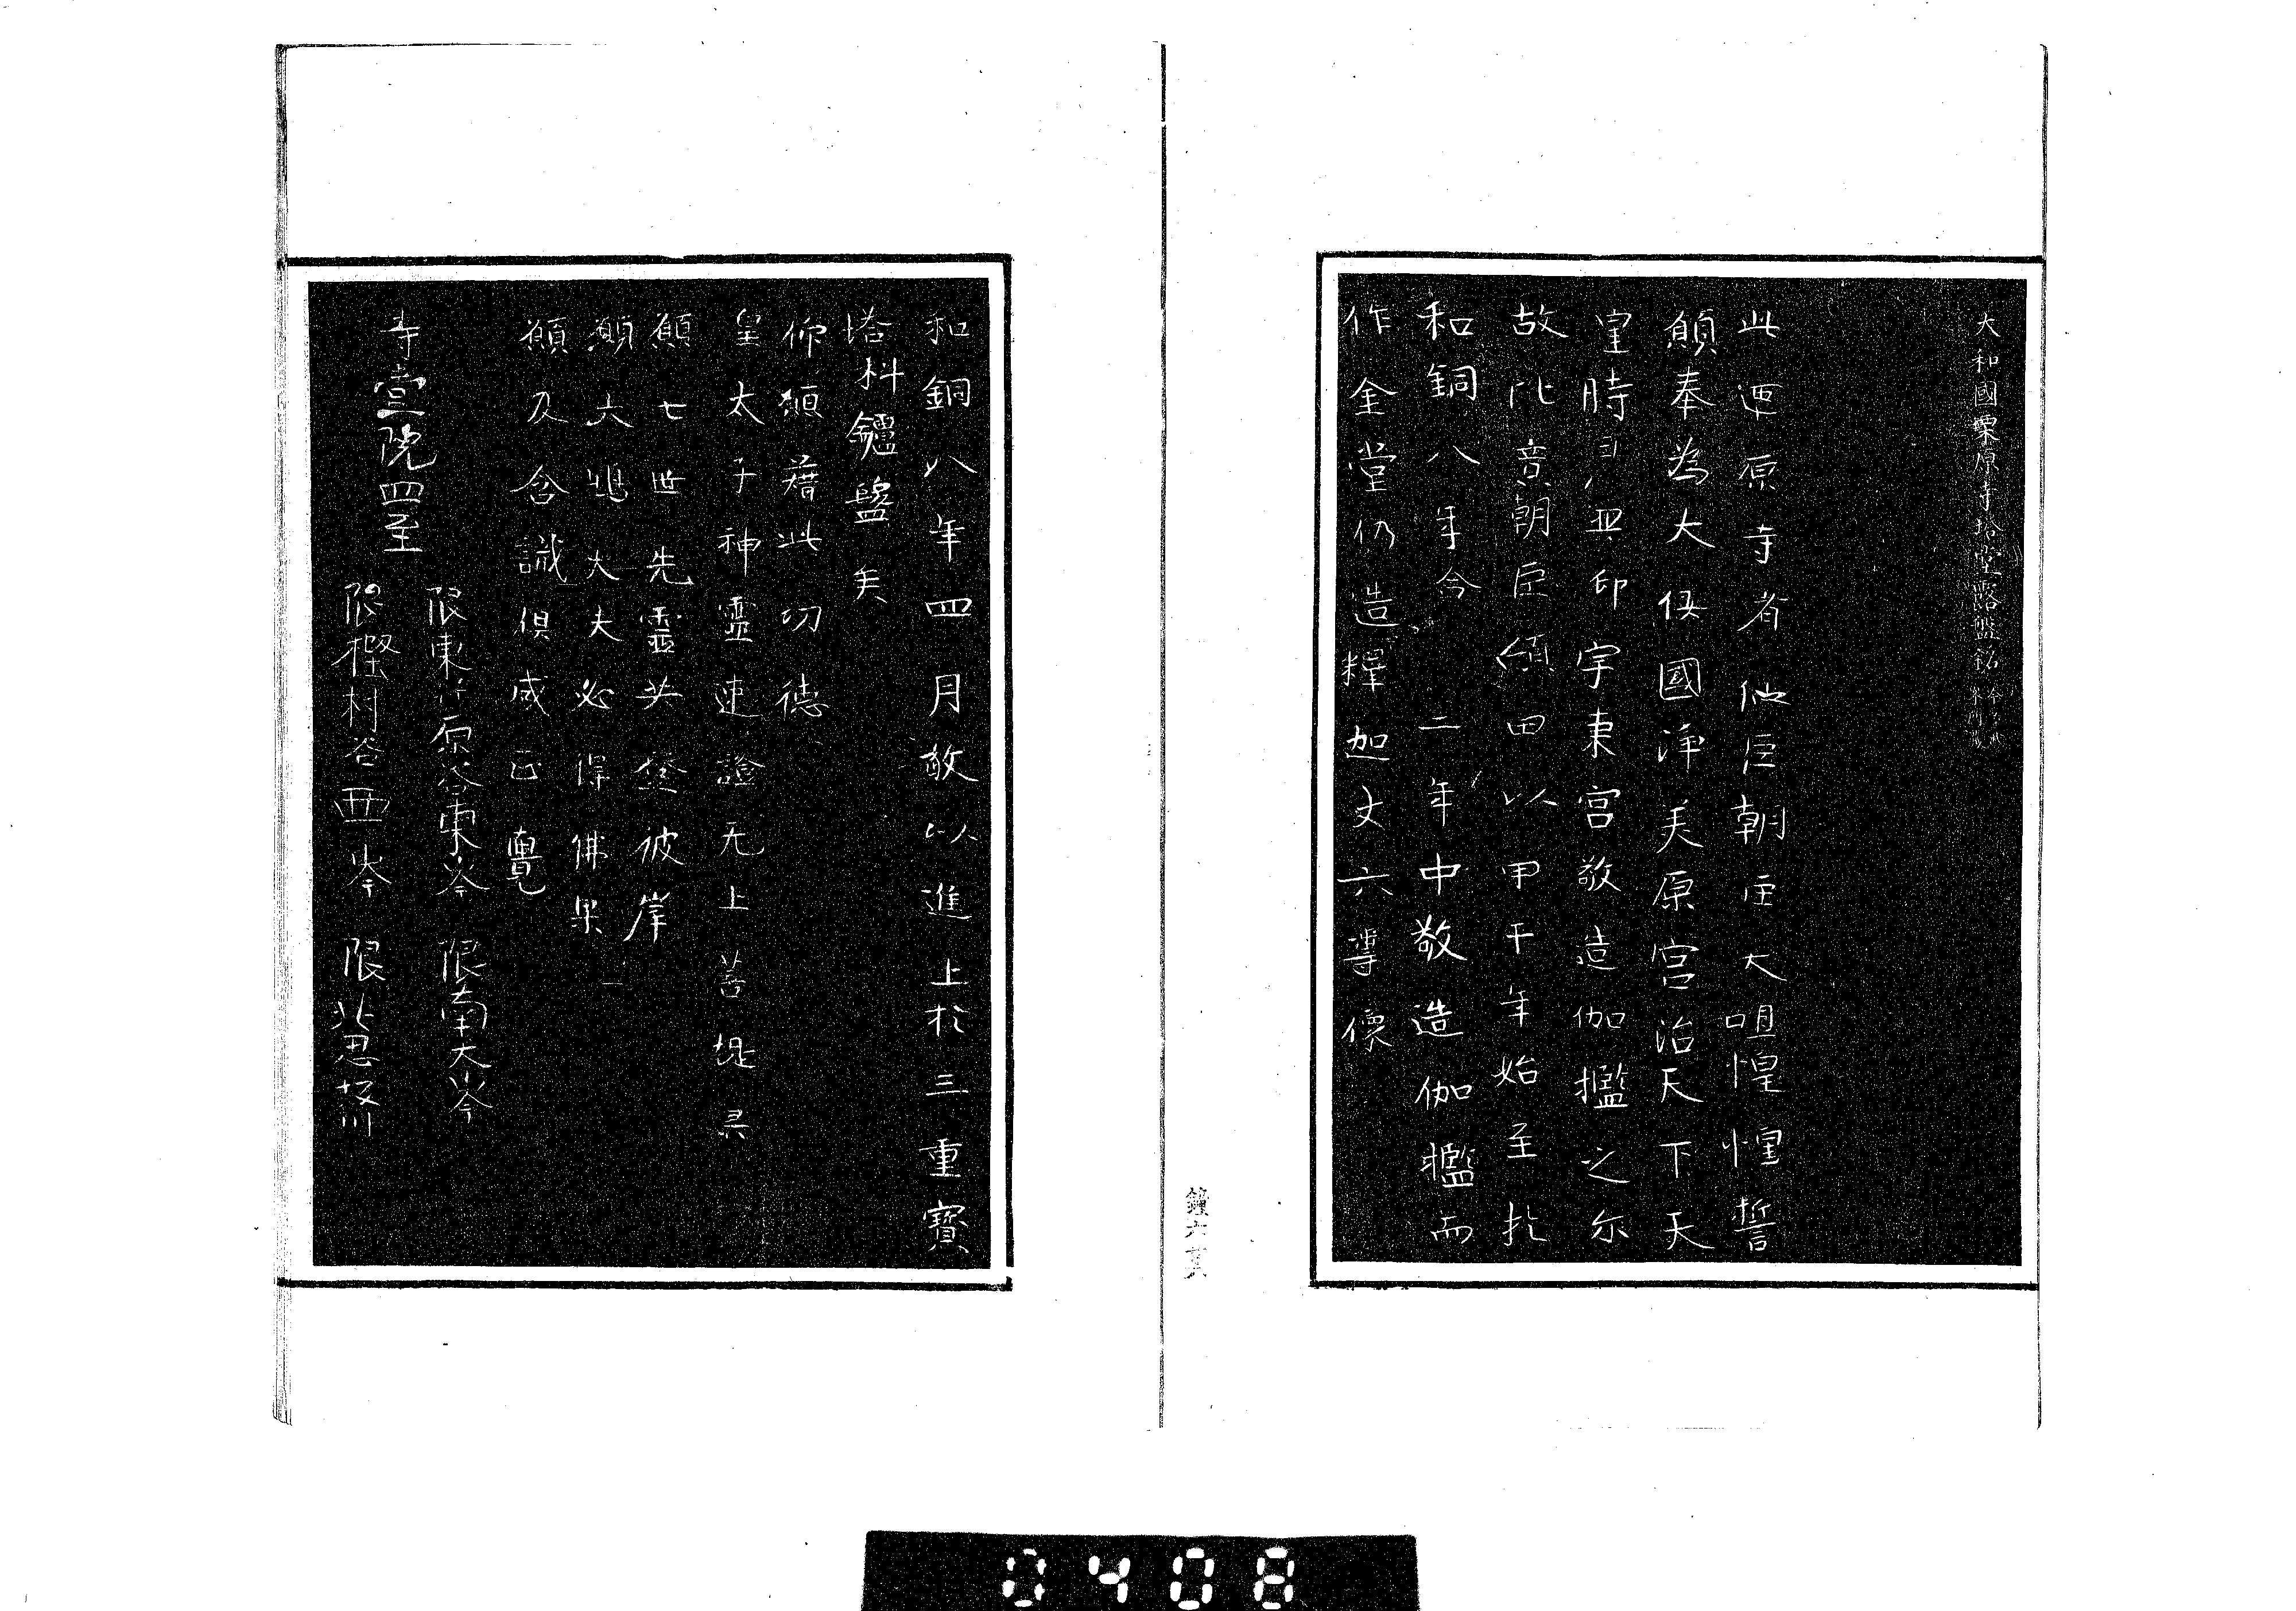 大和國粟原寺塔堂露盤銘
此粟原寺者仲臣朝臣大嶋惶惶誓
願奉為大倭國浄美原宮治天下天
皇時日並御宇東宮敬造伽檻之尓
故比賣朝臣額田以甲午年始至於
和銅八年合 二年中敬造伽檻而
作金堂仍造釋迦丈六尊像
和銅八年四月敬以進上於三重寳
塔科鑪盤矣
仰願藉此功德
皇太子神靈速證无上菩提果
願七世先靈共登彼岸
願大嶋大夫必得佛果
願及含識俱成正覺
寺壹院四至
限東竹原谷東岑 限南太岑
限樫村谷西岑 限北忍坂川
鐘六
0408